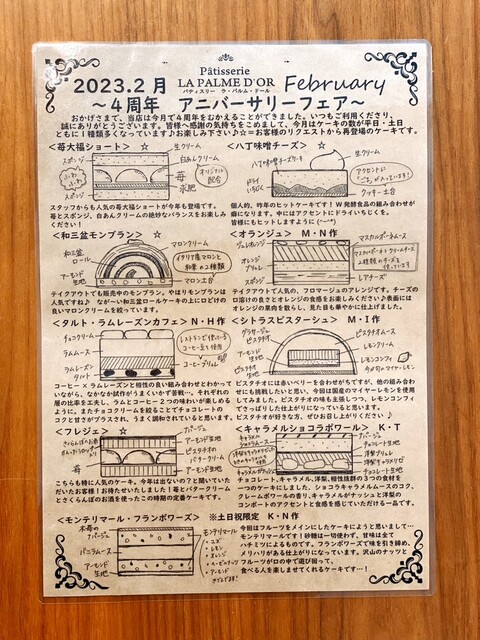 Pâtisserie
LA PALME D'OR
パティスリー ラ・パルム・ドール
2023.2月
February
～4周年 アニバーサリーフェア～
おかげさまで、当店は今月で4周年をむかえることができました。いつもご利用くださり、
誠にありがとうございます。皆様へ感謝の気持ちをこめまして、今月はケーキの数が平日・土日
ともに1種類多くなっています♪お楽しみ下さい♪☆=お客様のリクエストから再登場のケーキです。
<苺大福ショート> ☆
生クリーム
スポンジ
白あんクリーム
ふわふわスポンジ
オリジナル配合
苺
求肥
スタッフからも人気の苺大福ショートが今年も登場です。
苺とスポンジ、白あんクリームの絶妙なバランスをお楽しみ
ください!
<八丁味噌チーズ> ☆
生クリーム
八丁味噌チーズケーキ
干しいちじく
クッキー土台
個人的、昨年のヒットケーキです!W発酵食品の組み合わせが
癖になります。中にはアクセントにドライいちじくを。
皆様にもヒットしますように(^-^*)
<和三盆モンブラン> ☆
マロンクリーム
和三盆ロール
イタリア産マロンと和栗の2種類
アーモンド生地
マロン土台
テイクアウトでも販売中のモンブラン。やはりモンブランは
人気ですね♪ ながーい和三盆ロールケーキの上に口どけの
良いマロンクリームを絞っています。
<オランジェ> M・N作
マスカルポーネムース
ジュレオレンジ
マスカルポーネ+クリームチーズ
2種類のチーズを使っている
オレンジブリュレ
スポンジ
レアチーズ
テイクアウトで人気の、フロマージュのアレンジです。チーズの
口溶けの良さとオレンジの食感をお楽しみください♪表面には
オレンジの果肉を散らし、見た目も華やかに仕上げました。
<タルト・ラムレーズンカフェ> N・H作
チョコクリーム
レストランで使っているコーヒー豆を使用
ラムムース
コーヒーブリュレ
ラムレーズン
タルト
コーヒー×ラムレーズンと相性の良い組み合わせとわかって
いながら、なかなか試作がうまくいかず苦戦...。それぞれの
層の比率を工夫し、ラムとコーヒーと2つの味わいが楽しめる
ように。またチョコクリームを絞ることでチョコレートの
コクと甘さがプラスされ、うまく調和されていると思います。
<シトラスピスターシュ> M・I作
グラサージュピスタチオ
ピスタチオムース
アーモンド生地
レモンクリーム
ピスタチオ生地
レモンコンフィ
ピスタチオには赤いベリーを合わせがちですが、他の組み合わ
せにも挑戦したいと思い、今回は国産のマイヤーレモンを使用
してみました。ピスタチオの味も主張しつつ、レモンコンフィ
でさっぱりした仕上がりになっていると思います。
ピスタチオが好きな方、ぜひお召し上がりください♪
<フレジェ> ☆
アパージュ
さくらんぼのお酒
アーモンド生地
ピスタチオのバタークリーム
苺
アーモンド生地
こちらも特に人気のケーキ。今年は出ないの?と聞いていた
だいたお客様!お待たせいたしました!苺とバタークリーム
とさくらんぼのお酒を使ったこの時期の定番ケーキです。
<キャラメルショコラポワール> K・T
キャラメルショコラムース
アパージュ
チョコレート生地
洋梨ブリュレ
洋梨キャラメリゼ
チョコレート生地
チョコレート、キャラメル、洋梨、相性抜群の3つの食材を
一つのケーキにしました。ショコラキャラメルムースのコク、
クレームポワールの香り、キャラメルがナッシュと洋梨の
コンポートのアクセントと食感を感じていただける一品です。
<モンテリマール・フランボワーズ> ※土日祝限定 K・N作
木苺のアパージュ
モンテリマール
・ユズ
・レモン
・オレンジ
・アーモンド
バニラムース
アーモンド生地
今回はフルーツをメインにしたケーキにようと思いまして...
モンテリマールです!砂糖は一切使わず、甘味は全て
ハチミツによるものです。フランボワーズで味を引き締め、
メリハリがある仕上がりになっています。沢山のナッツと
フルーツが口の中で遊び回って、
食べる人を楽しませてくれるケーキです...!